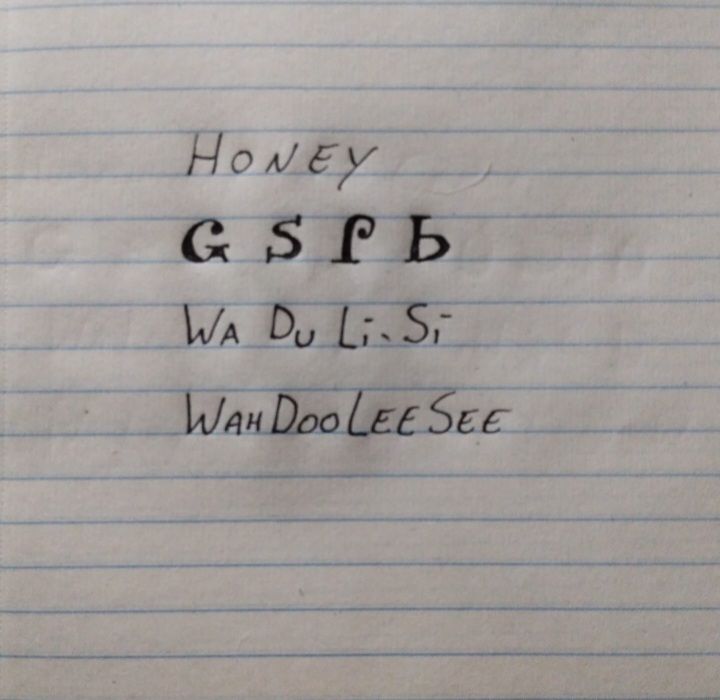 HONEY
ᏩᏚᎵᏏ
WA DU Li. Si
WAHDOOLEESEE